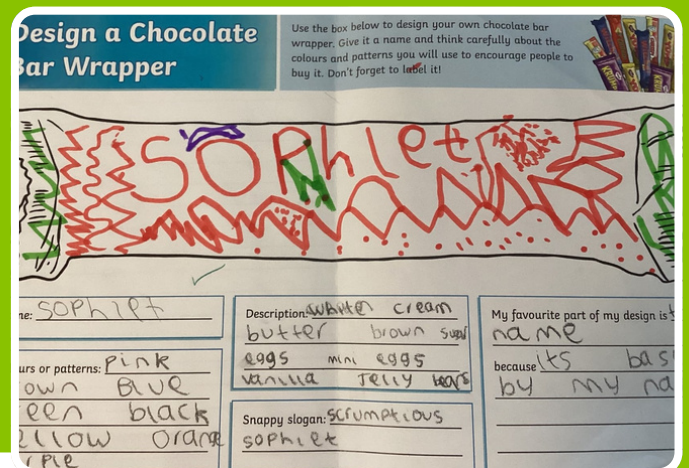 Design a Chocolate
Bar Wrapper
Use the box below to design your own chocolate bar
wrapper. Give it a name and think carefully about the
colours and patterns you will use to encourage people to
buy it. Don't forget to label it!
SOPhlet
ne: SOPhlet
urs or patterns: Pink
own Blue
een black
ellow orange
rple
Description: white cream
butter brown sugar
eggs mini eggs
vanilla Jelly bears
Snappy slogan: scrumptious
sophlet
My favourite part of my design is
name
because its bas
by my na